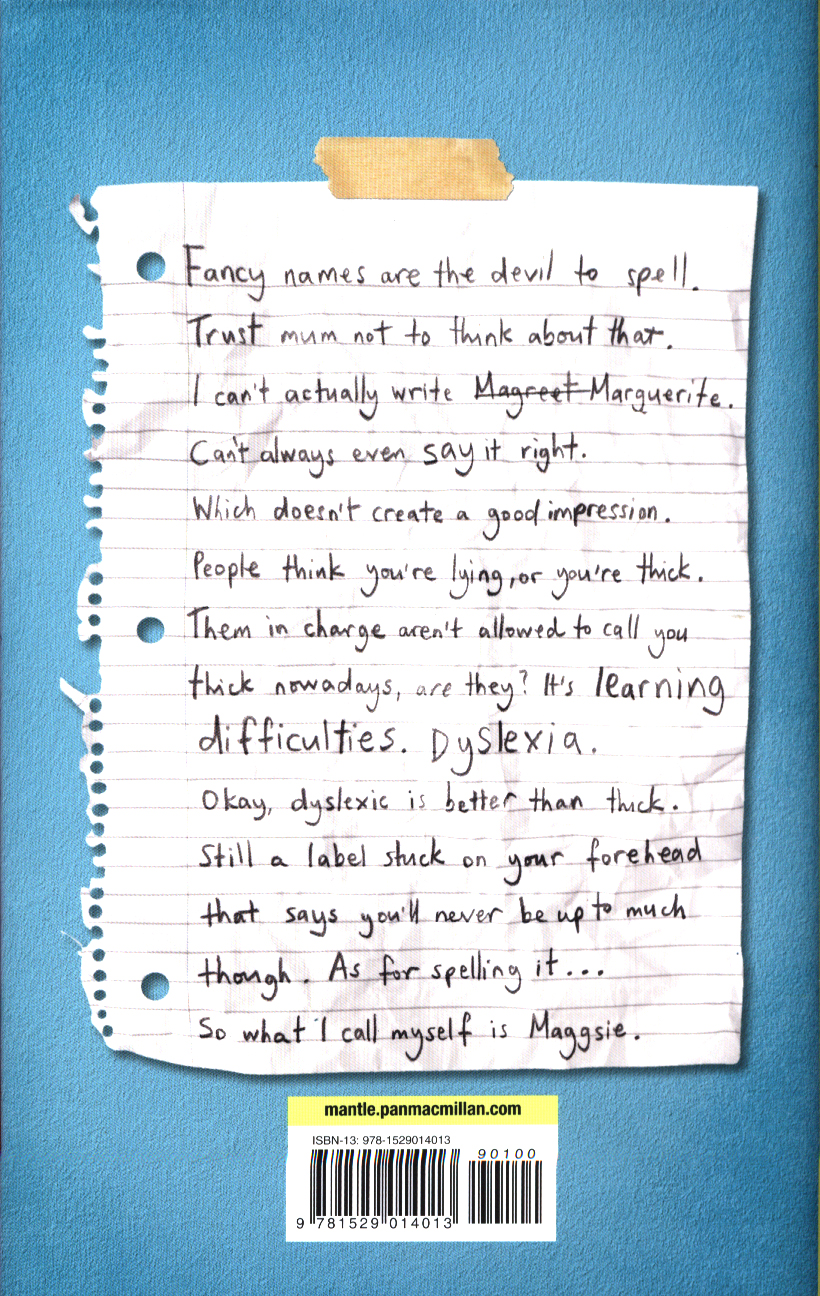 Fancy names are the devil to spell.
Trust mum not to think about that.
I can't actually write Magreet Marguerite.
Can't always even say it right.
Which doesn't create a good impression.
People think you're lying, or you're thick.
Them in charge aren't allowed to call you
thick nowadays, are they? It's learning
difficulties. Dyslexia.
Okay, dyslexic is better than thick.
Still a label stuck on your forehead
that says you'll never be up to much
though. As for spelling it...
So what I call myself is Maggsie.
mantle.panmacmillan.com
ISBN-13: 978-1529014013
90100
9 781529 014013